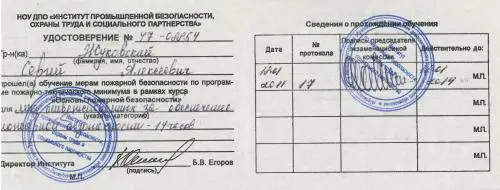 НОУ ДПО «ИНСТИТУТ ПРОМЫШЛЕННОЙ БЕЗОПАСНОСТИ,
ОХРАНЫ ТРУДА И СОЦИАЛЬНОГО ПАРТНЕРСТВА»
УДОСТОВЕРЕНИЕ № 47-
Гр-н(ка) Жуковский
(фамилия, имя, отчество)
Сергей Алексеевич
прошел(а) обучение мерам пожарной безопасности по програм-
ме пожарно-технического минимума в рамках курса
«Основы пожарной безопасности»
для лиц ответственных за обеспечение
(указать категорию)
пожарной безопасности - 14 часов
Директор Института Б.В. Егоров
(подпись)
М.П.
Сведения о прохождении обучения
Дата
№ протокола
Подпись председателя экзаменационной комиссии
Действительно до:
2011 17 2014 М.П.
М.П.
М.П.
М.П.